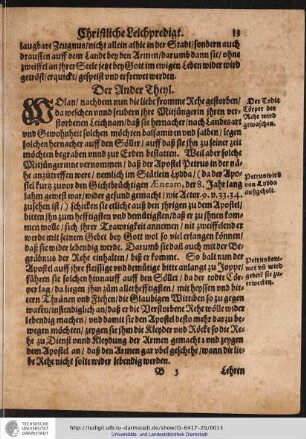 Christliche Leichpredigt. 13
laugbare Zeugnus/nicht allein alhie in der Stadt/sondern auch
draussen auff dem Lande bey den Armen/darumb dann sie/ohne
zweiffel an ihrer Seele jetzt bey Gott im ewigen Leben wider wird
getröst/erquickt/gespeist und erfrewet werden.
Der Ander Theyl.
WOlan/nachdem nun die liebe fromme Rehe gestorben/
da weschen vnnd seubern sie Mitjüngern ihren ver-
storbenen Leichnam/daß sie hernacher nach Landes art
und Gewohnheit solchen möchten balsamiren und salben/legen
solchen hernacher auff den Söller/auff daß sie ihn zu seiner zeit
möchten begraben vnnd zur Erden bestatten. Weil aber solche
Mitjüngerinne vernommen/daß der Apostel Petrus in der nä-
he anzutreffen wer/nemlich im Stätlein Lydda/(da der Apo-
stel kurtz zuvor den Gichtbrüchtigen Æneam, der 8. Jahr lang
lahm gewest war/wider gesund gemacht/wie Actor. 9. v. 33. 34.
zusehen ist/) schicken sie etliche auß den jhrigen zu dem Apostel/
bitten jhn zum hefftigsten und demütigsten/daß er zu ihnen kom-
men wolle/sich ihrer Trawrigkeit annemen/
wer mit seinem Gebet bey Gott wol so viel erlangen können/
daß sie wider lebendig werde. Darumb sie daß auch mit der Be-
gräbnus der Rehe einhalten/biß er komme. So balt nun der
Apostel auff ihre fleissige und demütige bitte anlangt zu Joppe/
führen sie solchen hienauff auff den Söller/da der todte Cör-
per lag/da liegen jhm zum allerhefftigsten/mit heyssen und bit-
tern Thränen und Flehen/die Glaubigen Wittiben so zu gegen
warten/instendigst an/daß er die Verstorbene Rehe wölle wi-
der lebendig machen/und damit sie den Apostel desto mehr darzu be-
wegen möchten/zeygen sie jhm die Kleyder und Röcke so die Re-
he zu Dienst vnnd Kleydung der Armen gemacht/und zeygen
dem Apostel an/daß den Armen gar vbel geschehe/wann die lie-
be Rehe nicht solte wider lebendig werden.
B 3 Lehren
Der Todte
Cörper der
Rehe wird
gewaschen.
Petrus wird
von Lydda
außgeholt.
Petrus kom-
met vñ wird
gebeten sie zu-
erwecken.
TECHNISCHE
UNIVERSITÄT
DARMSTADT
http://tudigit.ulb.tu-darmstadt.de/show/O-6417-20/0013
Universitäts- und Landesbibliothek Darmstadt